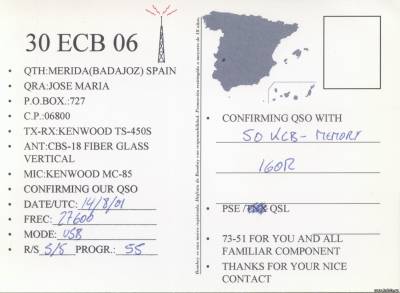 30 ECB 06
• QTH:MERIDA(BADAJOZ) SPAIN
• QRA:JOSE MARIA
• P.O.BOX.:727
• C.P.:06800
• TX-RX:KENWOOD TS-450S
• ANT:CBS-18 FIBER GLASS
VERTICAL
• MIC:KENWOOD MC-85
• CONFIRMING OUR QSO
• DATE/UTC: 14/8/01
• FREC: 27600
• MODE: USB
• R/S 5/5 PROGR.: 55
• CONFIRMING QSO WITH
50 KCB - MEMORY
IGOR
• PSE /TNX QSL
• 73-51 FOR YOU AND ALL
FAMILIAR COMPONENT
• THANKS FOR YOUR NICE
CONTACT